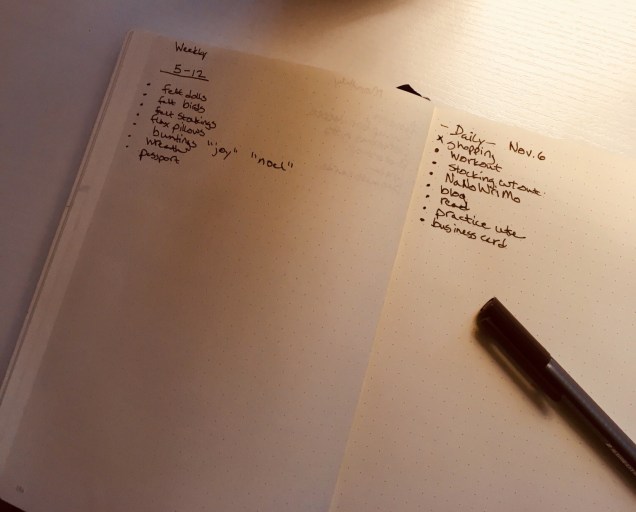 Weekly
5-12
• felt dolls
• felt birds
• felt stockings
• flax pillows
• buntings "joy" "noel"
• wreath
• passport
- Daily - Nov. 6
x shopping
• workout
• stocking cut out
• NaNoWriMo
• blog
• read
• practice uke
• business card